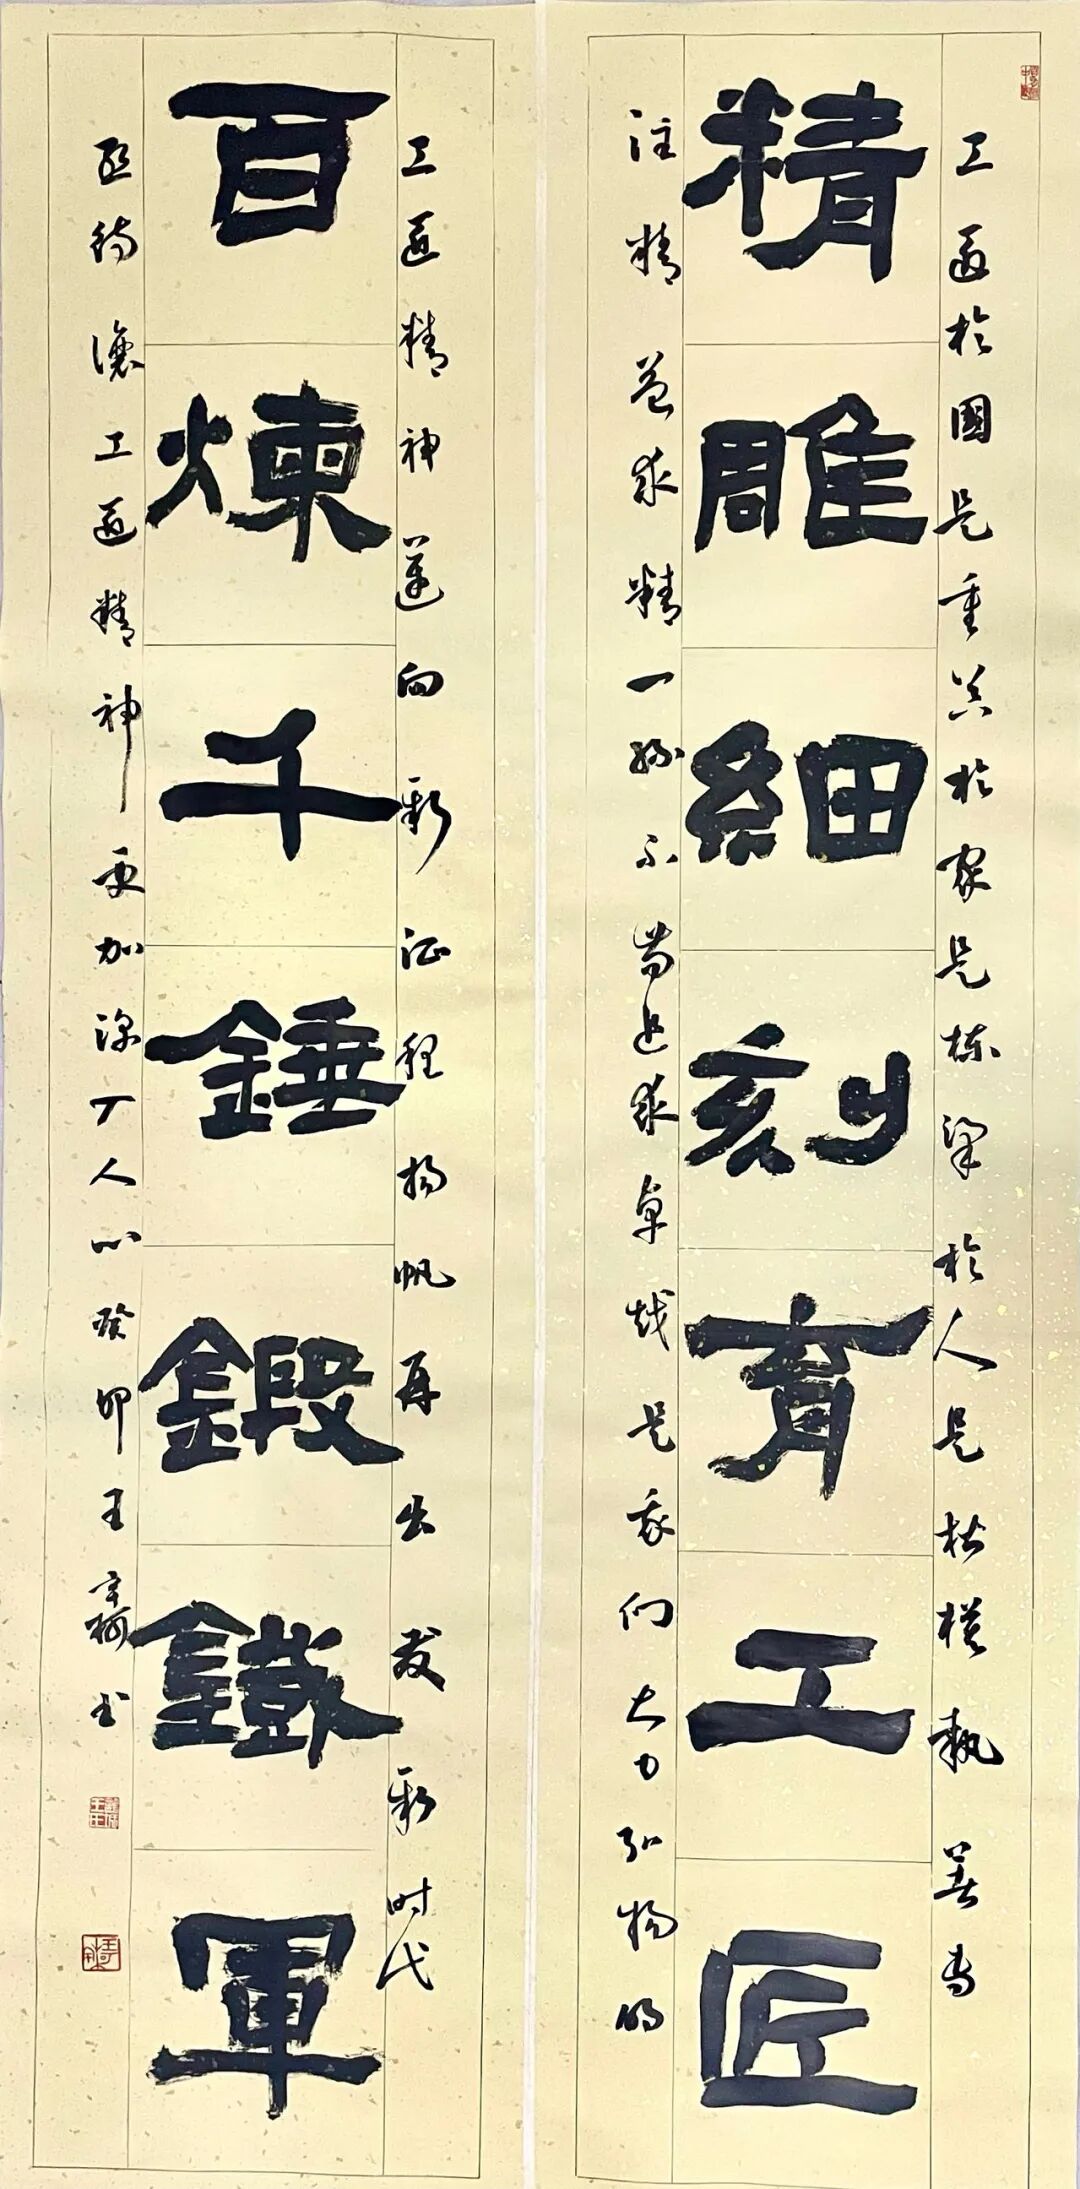 工匠於國是重器於家是栋梁於人是楷模執著专
精雕細刻育工匠
注精益求精一絲不苟追求卓越是我们大力弘揚的
工匠精神邁向新征程揚帆再出发新时代
百煉千錘鍛鐵軍
亟待讓工匠精神更加深入人心癸卯王书